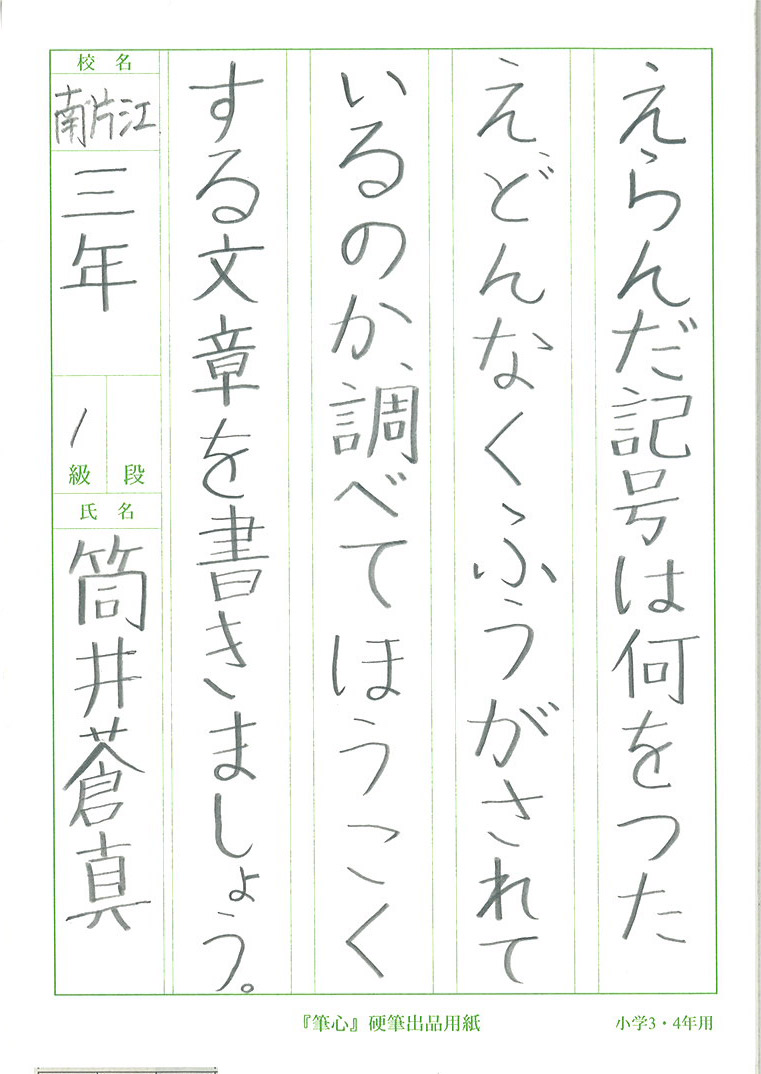 えらんだ記号は何をつた
え、どんなくふうがされて
いるのか、調べてほうこく
する文章を書きましょう。
校名
南片江
三年
1
級 段
氏名
筒井蒼真
『筆心』硬筆出品用紙
小学3・4年用